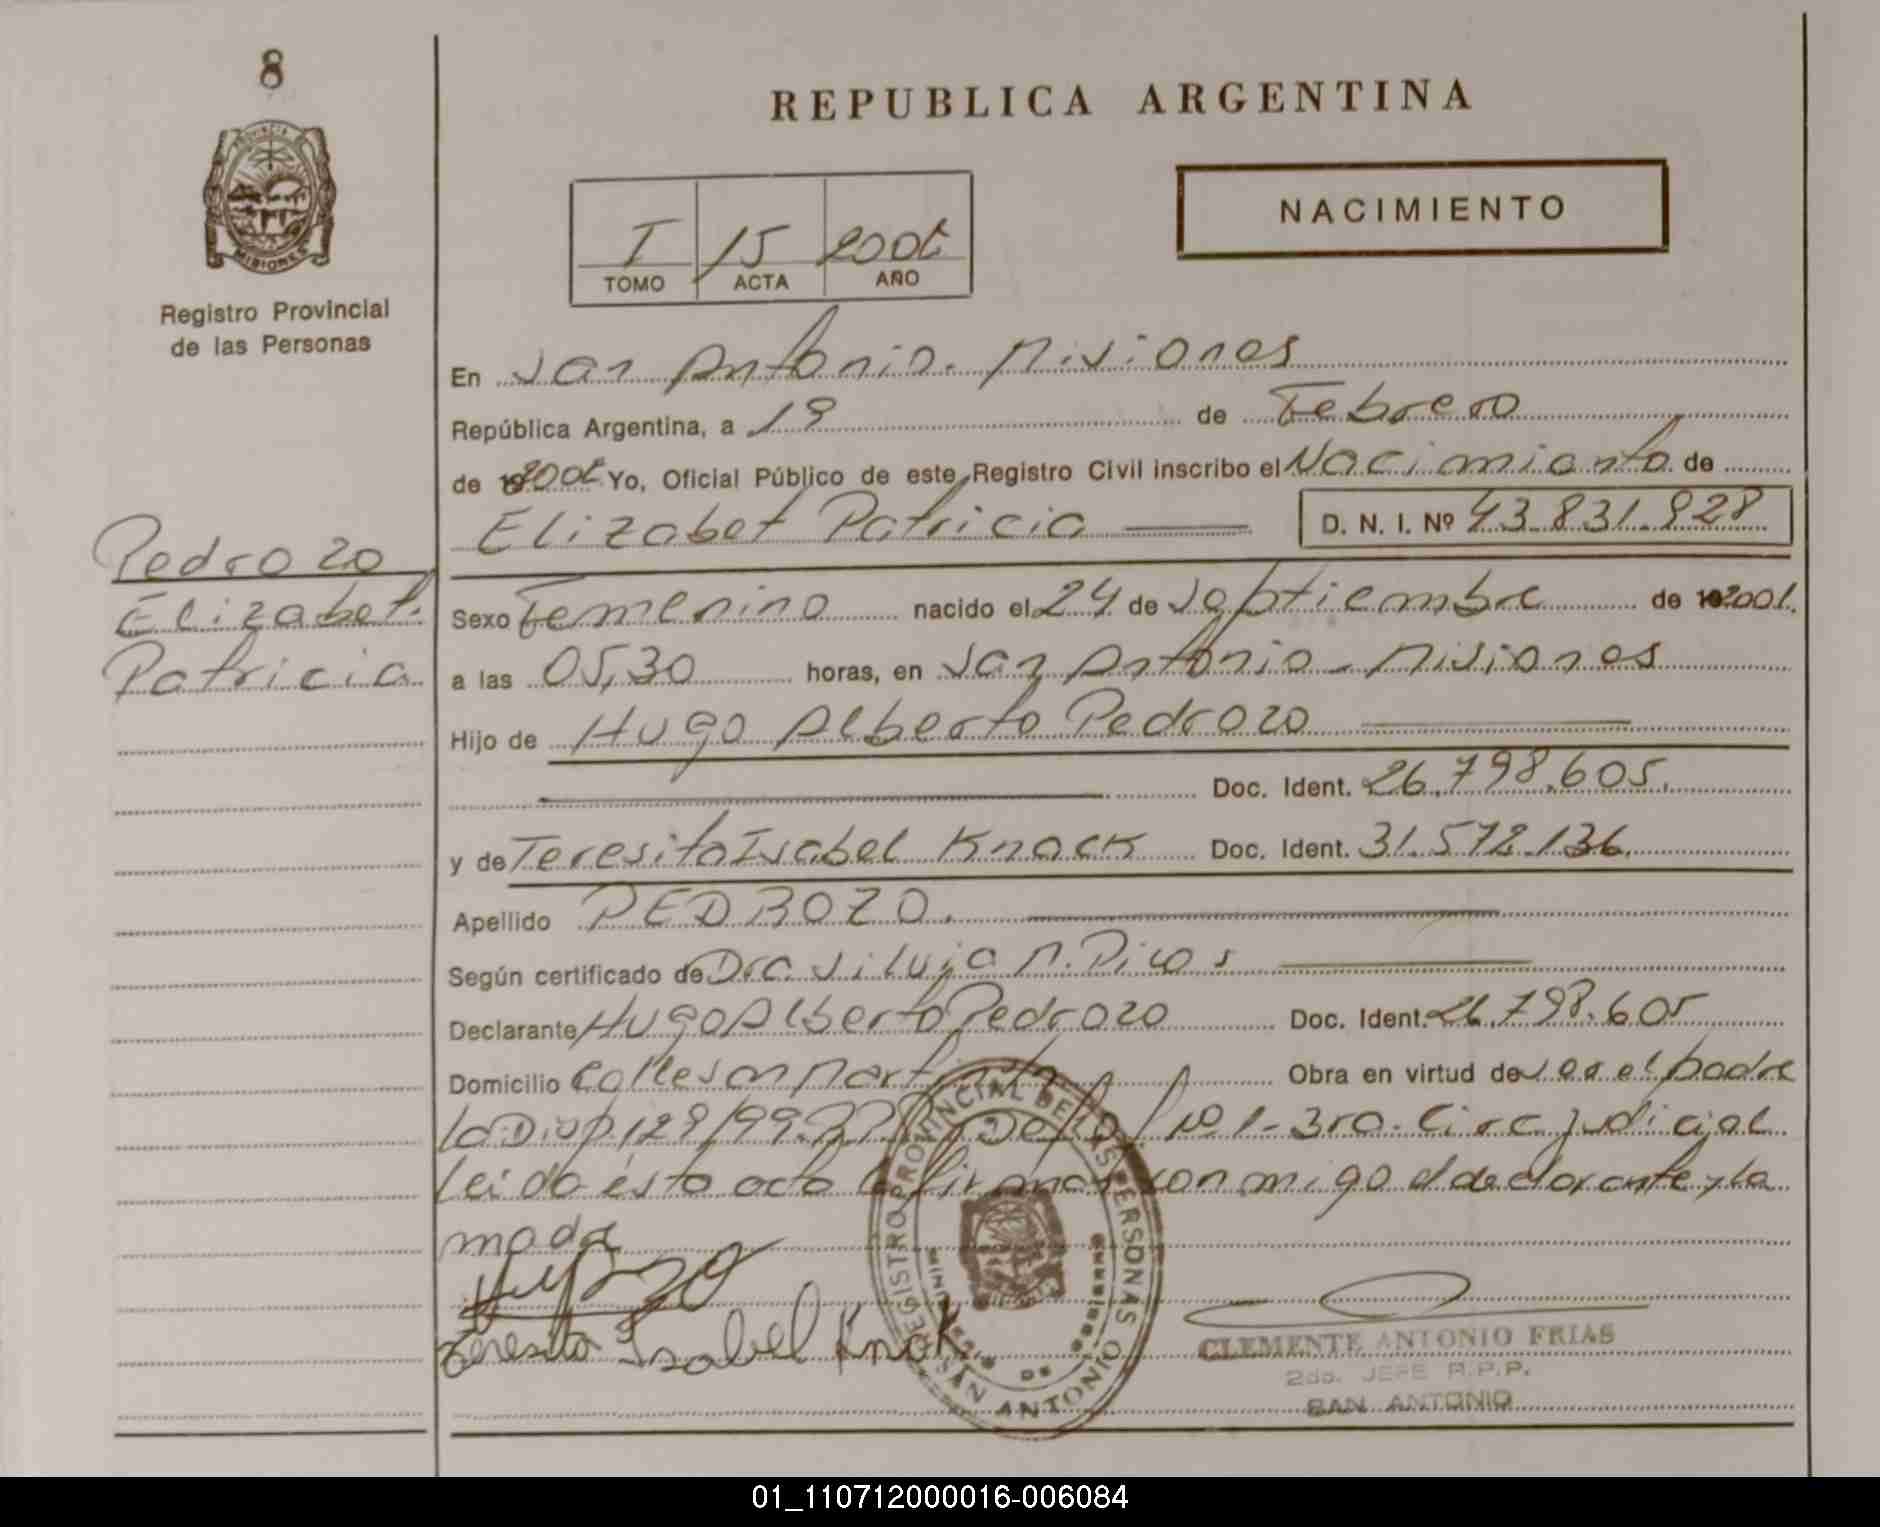 8
PROVINCIA DE
MISIONES
Registro Provincial
de las Personas
Pedrozo
Elizabet
Patricia
REPUBLICA ARGENTINA
NACIMIENTO
I 15 2002
TOMO ACTA AÑO
En San Antonio. Misiones
República Argentina, a 19 de Febrero
de 2002 Yo, Oficial Público de este Registro Civil inscribo el Nacimiento de
Elizabet Patricia D. N. I. Nº 43.831.928
Sexo Femenino nacido el 24 de Septiembre de 2001.
a las 05,30 horas, en San Antonio - Misiones
Hijo de Hugo Alberto Pedrozo
Doc. Ident. 26.798.605.
y de Teresita Isabel Knack Doc. Ident. 31.572.136.
Apellido PEDROZO.
Según certificado de Dra. Silvia M.
Declarante Hugo Alberto Pedrozo Doc. Ident. 26.798.605
Domicilio Calle San Martín Obra en virtud de ser el padre
la Disp. 129/99 Nº 1 - 3ra. Circ Judicial
leído ésta acta la firman conmigo el declarante y la
madre
Teresita Isabel Knak
REGISTRO PROVINCIAL DE LAS PERSONAS
MINISTERIO DE GOBIERNO
SAN ANTONIO
CLEMENTE ANTONIO FRIAS
2do. JEFE R.P.P.
SAN ANTONIO
01_110712000016-006084